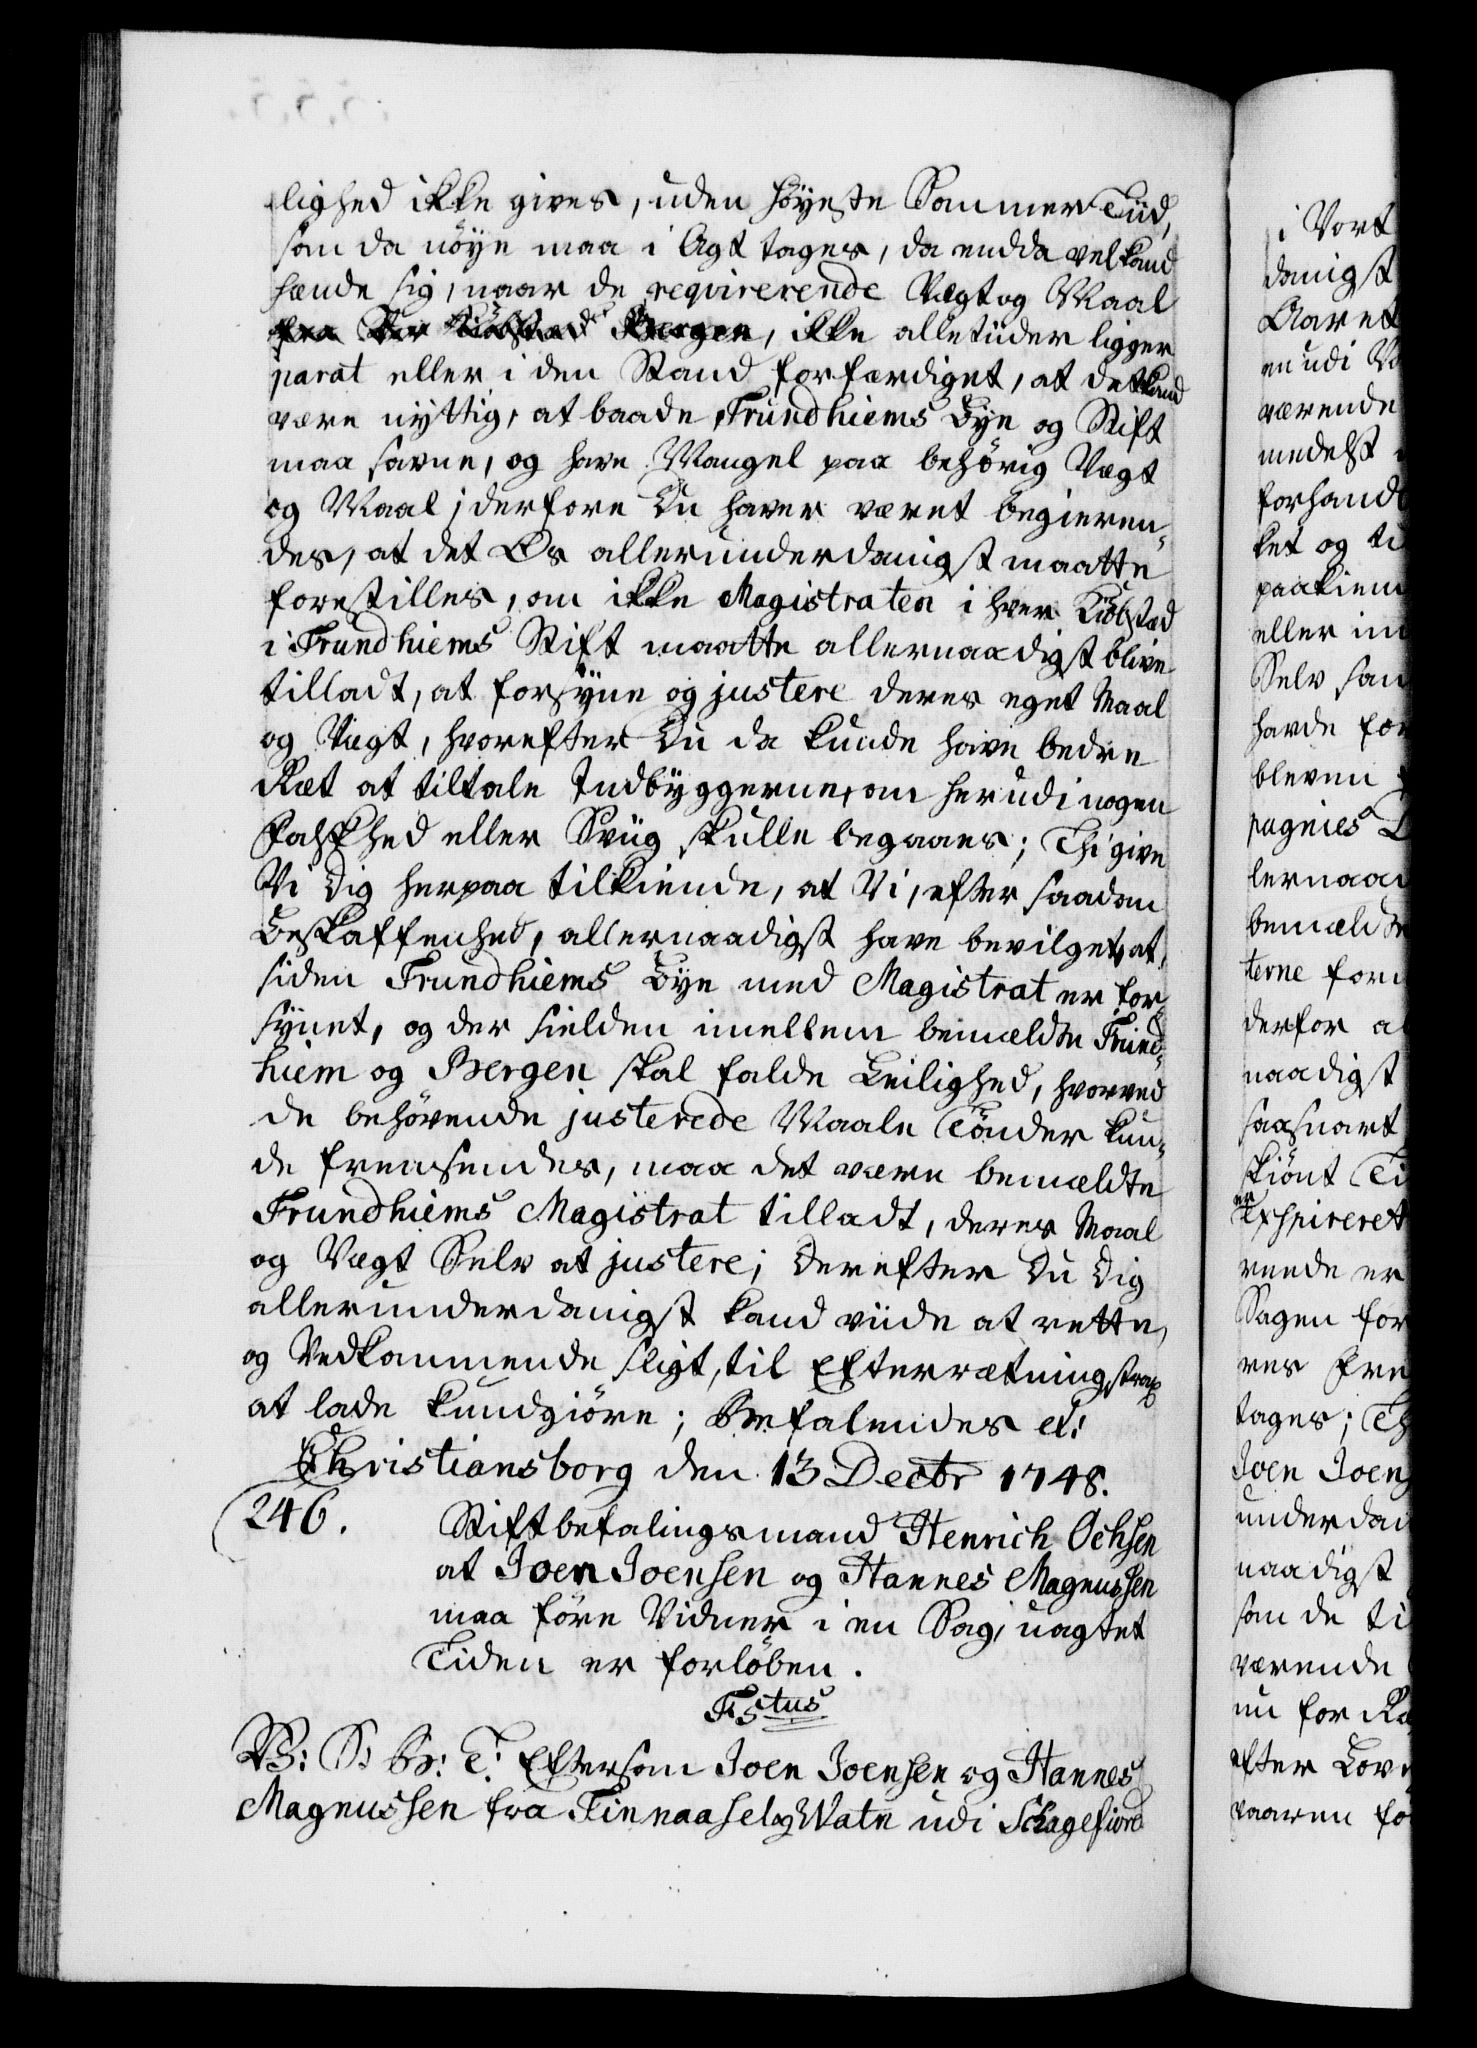 lighed ikke gives, uden høyeste Sommer Tiid,
som da nöye maa i Agt tages, da endda vel kand
hænde sig, naar de reqvirerende Vægt og Maal
fra Bergen, ikke alletiider ligger
parat eller i den Stand forfærdiget, at det kand
være nyttig, at baade Trundhiems Bye og Stift
maa savne, og have Mangel paa behörig Vægt
og Maal; derfore Du haver været begieren-
des, at det Os allerunderdanigst maatte
forestilles, om ikke Magistraten i hver Kiöbstæd
i Trundhiems Stift maatte allernaadigst blive
tilladt, at forsÿne og justere deres eget Maal
og Vægt, hvorefter Du da kunde have bedre
Ræt at tiltale Indbÿggerne, om herudi nogen
Falskhed eller Sviig skulle begaaes; Thi give
Vi Dig herpaa tilkiende, at Vi, efter saadan
Beskaffenhed, allernaadigst have bevilget, at,
siden Trundhiems Bye med Magistrat er for-
sÿnet, og der sielden imellem bemældte Trund-
hiem og Bergen skal falde Leilighed, hvorved
de behövende justerede Maale Tönder kun-
de fremsendes, maa det være bemældte
Trundhiems Magistrat tilladt, deres Maal
og Vægt Selv at justere; Derefter Du Dig
allerunderdanigst kand viide at rette,
og Vedkommende sligt, til Efterrætning strax
at lade kundgiöre; Befalendes etc:
Christiansborg den 13 Decbr 1748.
246. Stiftbefalingsmand Henrich Ochsen
at Joen Joensen og Hannes Magnussen
maa före Vidner i en Sag, uagtet
Tiden er forlöben.
F 5tus
V: S: Br: T: Eftersom Joen Joensen og Hannes
Magnussen fra Finnaasel og Vatn udi Schagefiord
i Vort
danigst
Aaret
en udi Vo
værende
medelst
forhand
ket og ti
paakiend
eller im
Selv som
havde for
bleven
pagnies
lernaad
bemældte
terne for
derfor al
naadigst
saasnart
skiönt Ti
expireret
rende er
Sagen for
res fre
tages; Th
Joen Joen
underdan
naadigst
som de ti
værende
nu for Ræ
efter Lov
vaaren fo